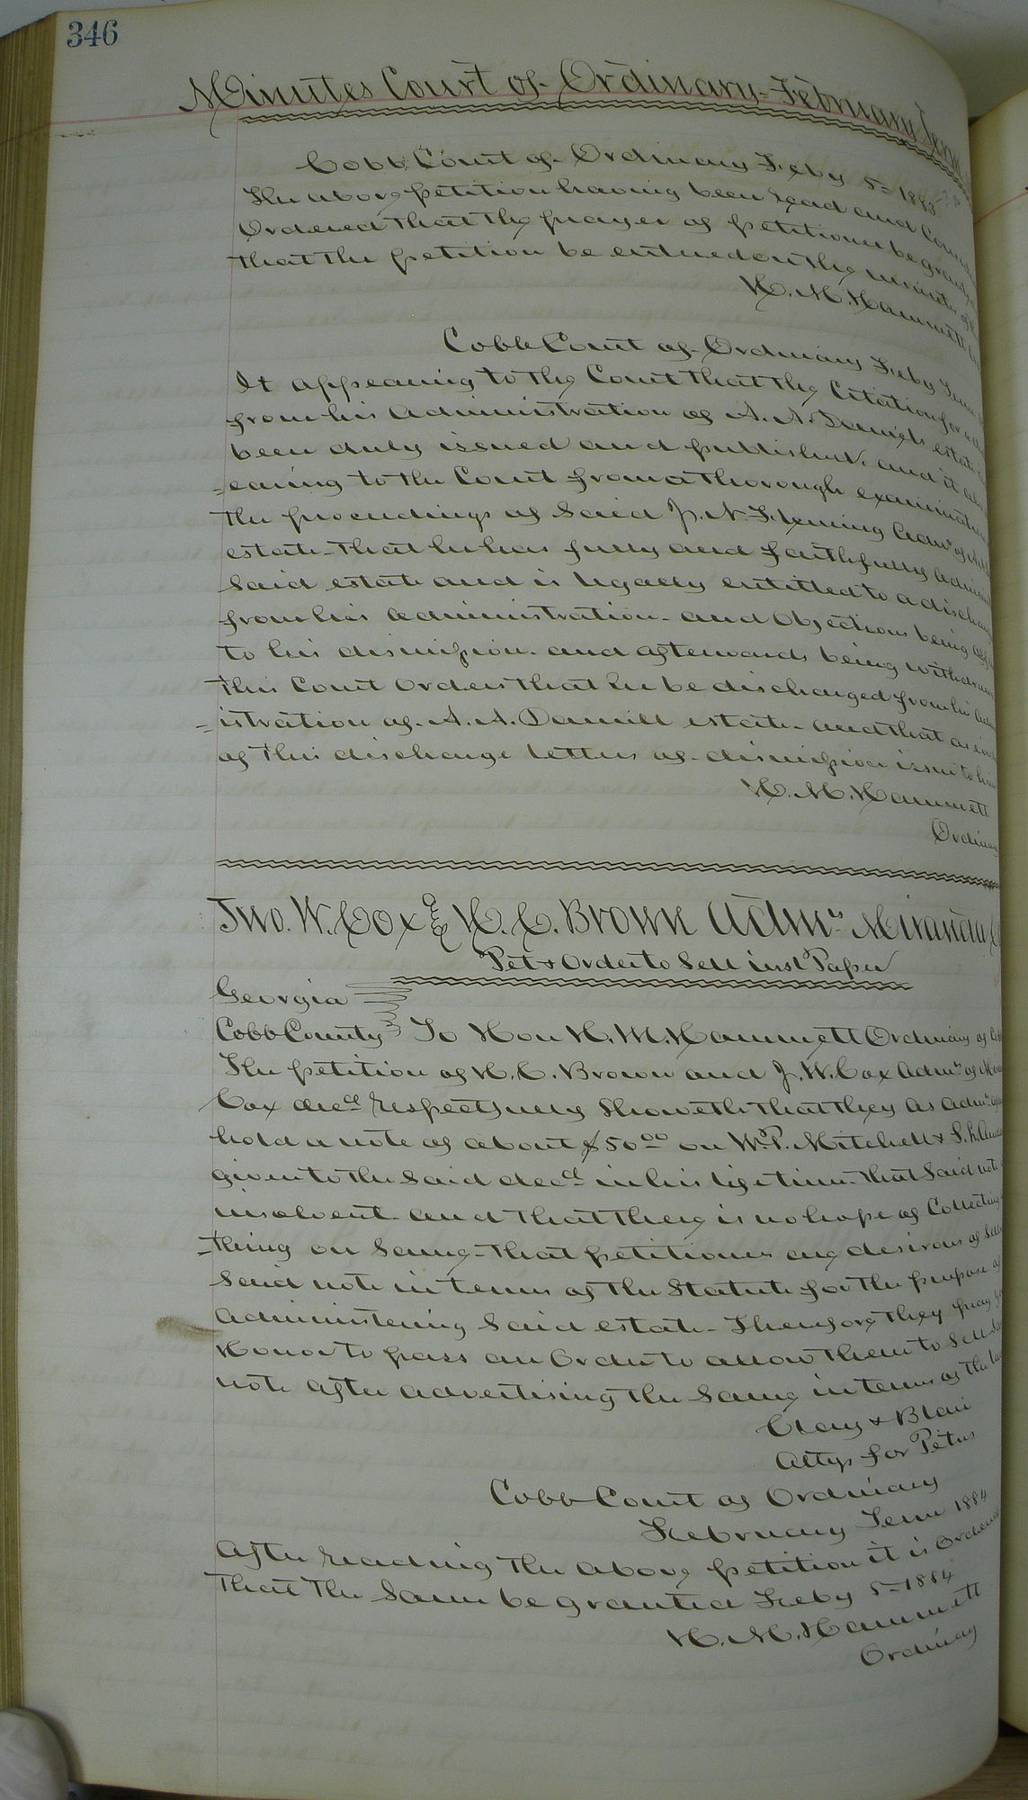 346
Minutes Court of Ordinary February Term
Cobb Court of Ordinary Feby 5= 188
The above petition having been read and
Ordered that the prayer of petitioner be
that the petition be entered on the minutes of
H. M. Hammett
Cobb Court of Ordinary Feby Term
It appearing to the Court that the Citation for
from his administration of A. A. Daniels estate
been duly issued and published, and it
=earing to the Court from a thorough
the proceedings of Said J. N. Fleming Admr of
estate that he has fully and faithfully
Said estate and is legally entitled to a
from his administration and Objections being
to his dismission and afterwards being
this Court Orders that he be discharged from his
=istration of A. A. Daniell estate and that as
of this discharge Letters of dismission issue to him
H. M. Hammett
Jno. W. Cox & H. C. Brown Admrs Miranda
Pet & Order to Sell insl Paper
Georgia
Cobb County To Hon H. M. Hammett Ordinary of
The petition of H. C. Brown and J. W. Cox Admrs of
Cox decd respectfully Showeth that they as
hold a note of about $50.00 on W. P. Mitchell & S. L.
given to the said decd in his lifetime that Said note
insolvent and that there is no hope of Collecting
=thing on Same that petitioners are desirous of
Said note in terms of the Statute for the purpose of
administering Said estate Therefore they pray
Honor to pass an Order to allow them to Sell
note after advertising the Same in terms of the
Clay & Blair
Attys for Petrs
Cobb Court of Ordinary
February Term 1884
After reading the above petition it is Ordered
that the Same be granted Feby 5= 1884
H. M. Hammett
Ordinary